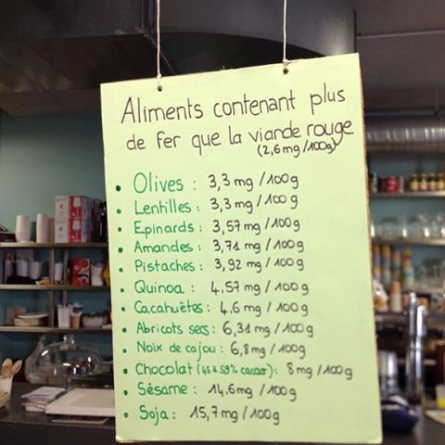 Aliments contenant plus
de fer que la viande rouge
(2,6mg/100g)
• Olives : 3,3 mg / 100g
• Lentilles : 3,3 mg / 100g
• Epinards : 3,57 mg / 100g
• Amandes : 3,71 mg / 100g
• Pistaches : 3,92 mg / 100g
• Quinoa : 4,57 mg / 100g
• Cacahuètes : 4,6 mg / 100g
• Abricots secs : 6,31 mg / 100g
• Noix de cajou : 6,8 mg / 100g
• Chocolat (45 à 59% cacao) : 8 mg / 100g
• Sésame : 14,6 mg / 100g
• Soja : 15,7 mg / 100g